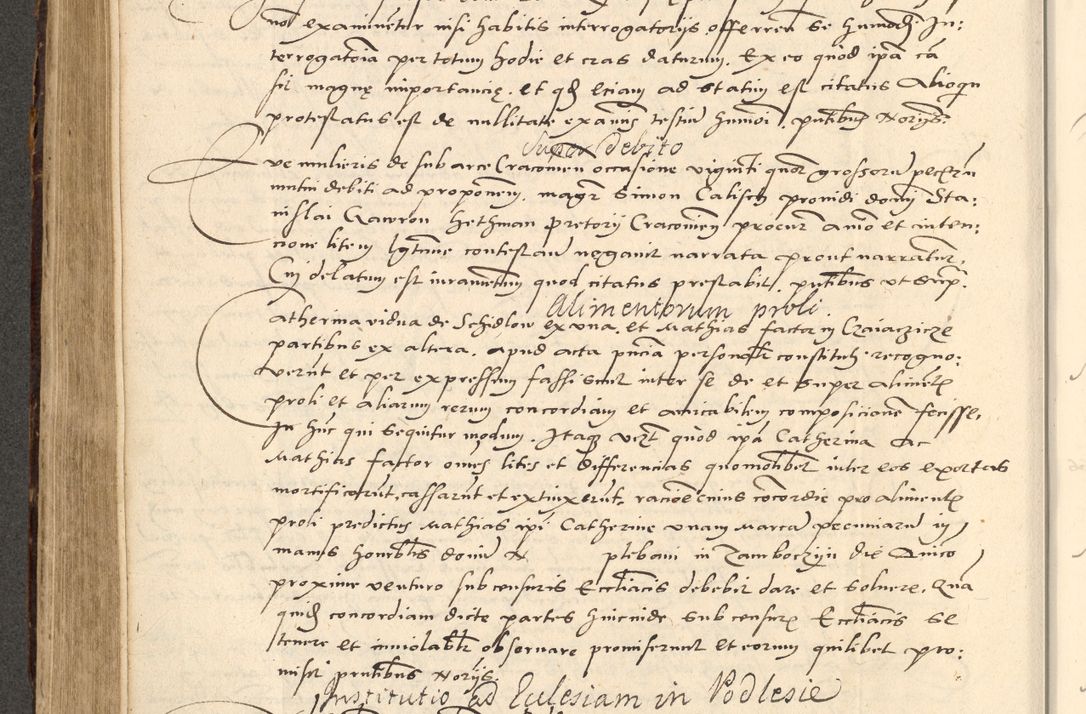 non examinentur nisi habitis interrogatorys offerren se hmodi In:
terrogatoia per totum hodie et cras daturum. Ex eo quod ipa ca
sit magnę importancię. et qd eciam ad statim est citatus Alioqn
protestatus est de nullitate exanis testiu hmoi. pntibus Norys.
Super debito
Eve mulieris de sub arce Cracovien occasione viginti quor grossoru pecuñ
mutui debiti ad proponem. magr Simon Calisch providi domi Sta:
nislai Gawron Hethman pretory Cracovien procur animo et inten:
cione litem lgtime contestan negavit narrata prout narrantur.
Cui delatum est iuramentum quod citatus prestabit. pntibus ut supr.
Alimentorum proli.
Catherina vidua de Schidlow ex una. et Mathias factor in Czaiaczicze
partibus ex altera. apud acta pncia personalr constituti. recogno:
verunt et per expressum fassi sunt inter se de et super aliment
proli et aliarum rerum concordiam et amicabilem composicione fecisse.
In hunc qui sequitur modum. Itaq vert quod ipa Catherina ac
Mathias factor omes lites et differencias quomolibet inter eos exortas
mortificarunt, cassarunt et extinxerunt. racioe cuius concordie pro aliment
proli predictus Mathias ipi Catherine unam Marca pecuniaru in
manus honorblis domi N plebani in Zamborzyn die Anico
proxime venturo sub censuris Ecclacis debebit dare et solvere. Qua
quid concordiam dicte partes hincinde sub censur Ecclacis se
tenere et inviolablr observare promiserunt et eorum quilibet pro:
misit pntibus Norys.
Institutio ad Eclesiam in Podlesie